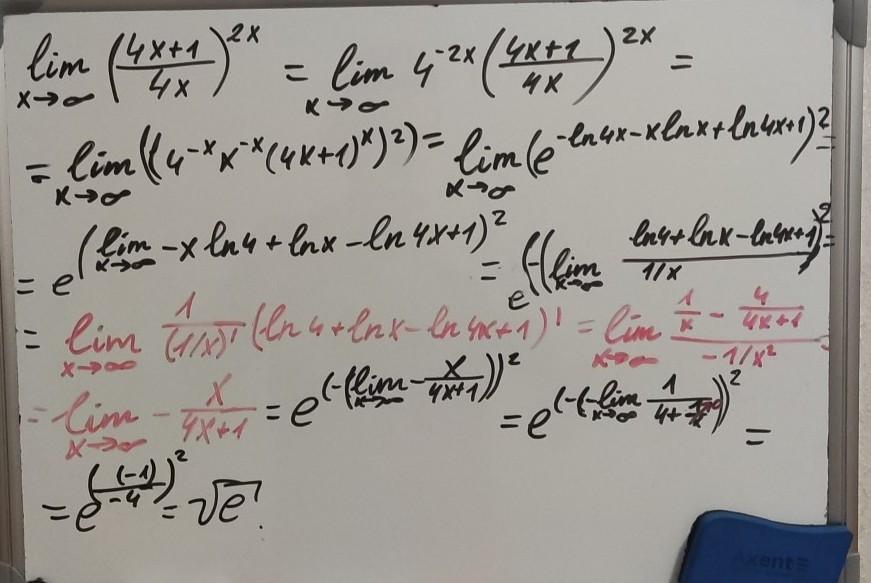 lim x→∞ ((4x+1)/(4x))^2x = lim x→∞ 4^-2x ((4x+1)/(4x))^2x =
= lim x→∞ ((4^-x x^-x (4x+1)^x)^2) = lim x→∞ (e^-ln4x-xlnx+ln4x+1)^2 =
= e^(lim x→∞ -x ln4+lnx-ln4x+1)^2 = e^(-(lim x→∞ (ln4+lnx-ln4x+1)/(1/x))^2 =
= lim x→∞ 1/(1/x)' (ln4+lnx-ln4x+1)' = lim x→∞ (1/x - 4/(4x+1))/(-1/x²)
= lim x→∞ - x/(4x+1) = e^(-(lim x→∞ - x/(4x+1)))^2 = e^(-(-lim x→∞ 1/(4+))^2 =
= e^((-1)/-4)^2 = √e
Axent